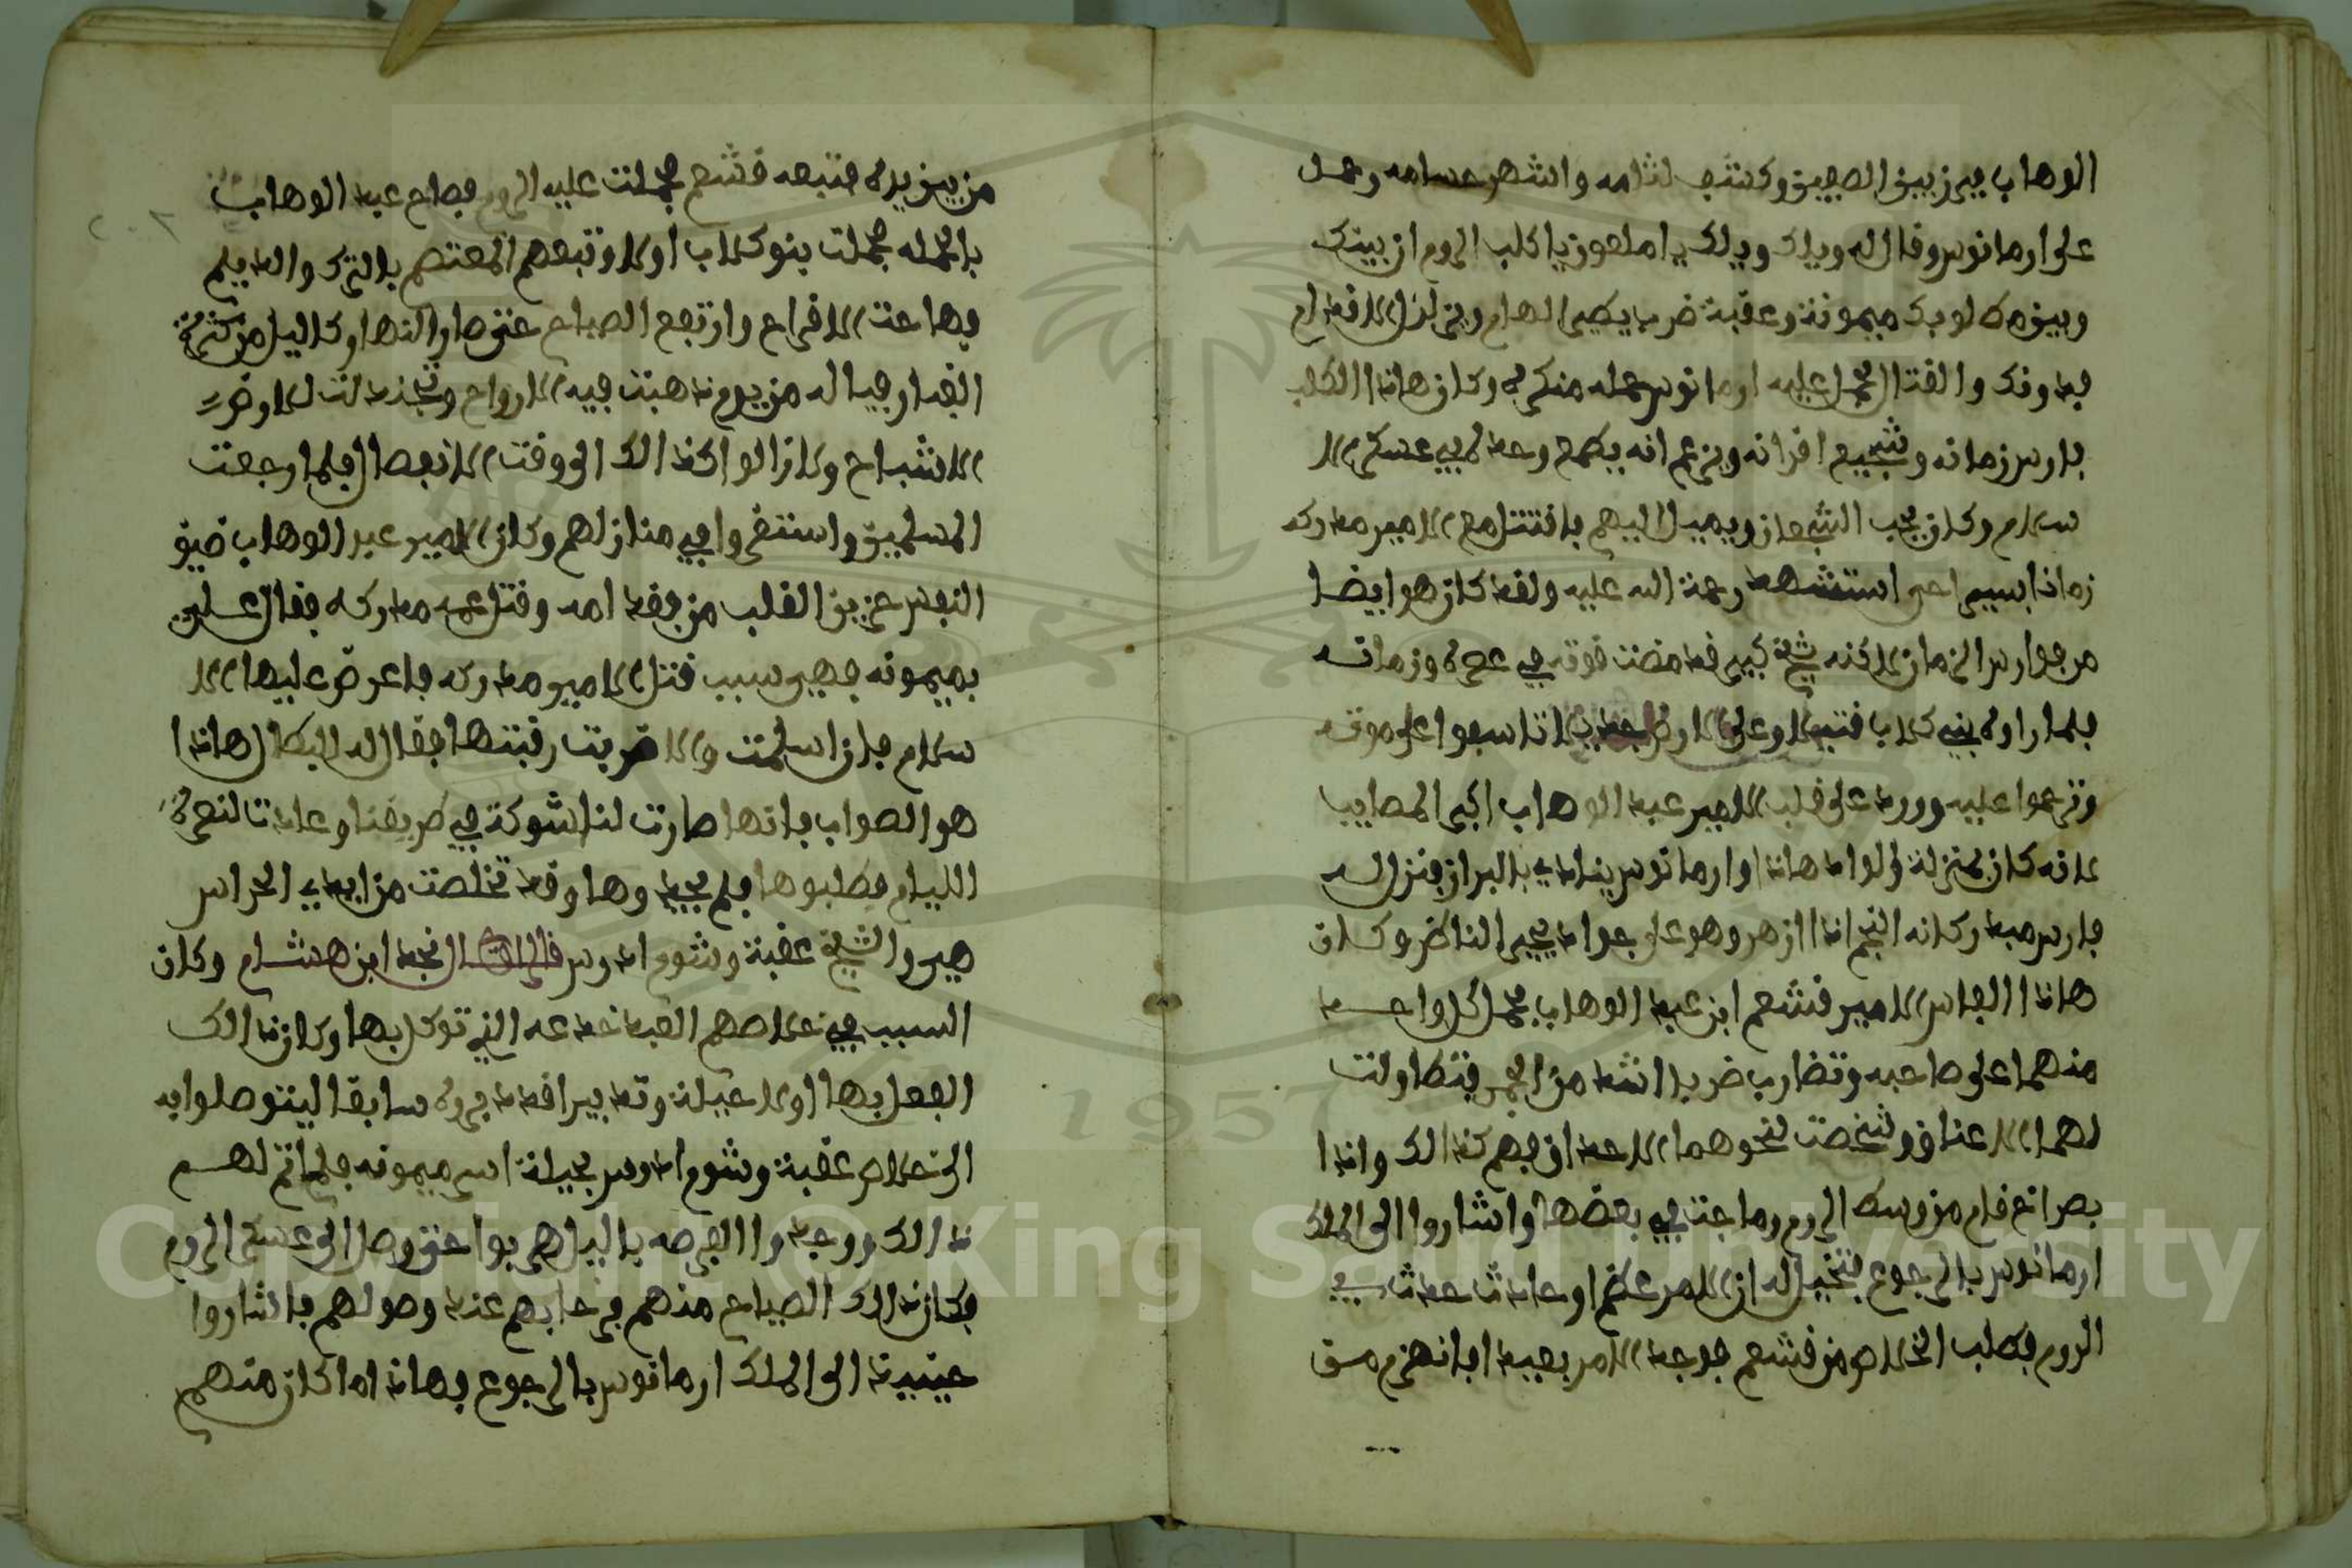 الوهاب فبرز بين الصفين وكشف لثامه واشهر حسامه وحمل
على ارمانوس وقال له ويلك ويلك يا ملعون يا كلب الروم ان بينك
وبين مطلوبك ميمونة وعقبة ضرب يطير الهام ويزلزل الاقدام
فدونك والقتال فحمل عليه ارمانوس حمله منكره وكان هاذا الكلب
فارس زمانه وشجيع اقرانه ويزعم انه يطمع وحده في عسكر الا
سلام وكان يحب الشجعان ويميل اليهم فاقتتل مع الامير مدركه
زمانا يسيرا حتى استشهد رحمة الله عليه ولقد كان هو ايضا
من فوارس الزمان لاكنه شيخ كبير قد مضت قوته في عمره وزمانه
فلما راوه بني كلاب قتيلا وعلى الارض جديلا تاسفوا على موته
وترحموا عليه وورد على قلب الامير عبد الوهاب اكبر المصايب
لانه كان بمنزلة والده هاذا وارمانوس ينادي بالبراز فنزل له
فارس صيد وكانه النجم اذا ازهر وهو على جواد يحير الناظر وكان
هاذا الفارس الامير قشعم ابن عبد الوهاب فحمل كل واحد
منهما على صاحبه وتضارب ضربا اشد من الجمر فتطاولت
لهما الاعناق وشخصت نحوهما الاحداق فبهم كذالك واذا
بصراخ قام من وسط الروم وماجت في بعضها واشاروا الى الملك
ارمانوس بالرجوع فتخيل له ان الامر عظم او حادث حدث في
الروم فطلب الخلاص من قشعم فوجد الامر بعيدا فانهزم من
من بين يديه فتبعه قشعم فحملت عليه الروم فصاح عبد الوهاب
بالحمله فحملت بنو كلاب اولا وتبعهم المعتصم بالترك والديلم
فهاجت الافراح وارتفع الصياح حتى صار النهار كاليل من كثرة
الغبار فيا له من يوم ذهبت فيه الارواح وتجندلت للارض
الاشباح ولازالوا كذالك الى وقت الانفصال فلما رجعت
المسلمين واستقروا في منازلهم وكان الامير عبد الوهاب ضيق
النفس حزين القلب من فقد امه وقتل عمه مدركه فقال علي
بميمونه فهي سبب قتل الامير مدركه فاعرض عليها الا
سلام فان اسلمت والا ضربت رقبتها فقال له البطال هاذا
هو الصواب فانها صارت لنا شوكة في طريقنا وعادت لنصرة
الليام فطلبوها فلم يجدوها وقد تخلصت من ايدي الحراس
هي والشيخ عقبة وشوم ادرس قال الراوي نجد ابن هشام وكان
السبب في خلاصهم العبد خدعه الذي توكل بها وكان ذالك
الفعل بها اولا حيلة وتدبير اقدد في ... سابقا ليتوصلوا به
الى خلاص عقبة وشوم ادرس بحيلة اسر ميمونه فلما تم لهم
ذالك ووجدوا الفرصه باليل هربوا حتى وصل الى عسكر الروم
فكان ذالك الصياح منهم فرحا بهم عند وصولهم فاشاروا
حينيذ الى الملك ارمانوس بالرجوع فهاذا ما كان منهم